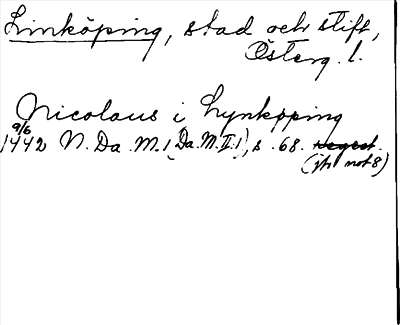 Linköping, stad och stift,
Österg. l.
Nicolaus i Lynkøping
9/6
1442 N. Da. M. 1 (Da. M. II. 1), s. 68. regest.
(jfr not 8)